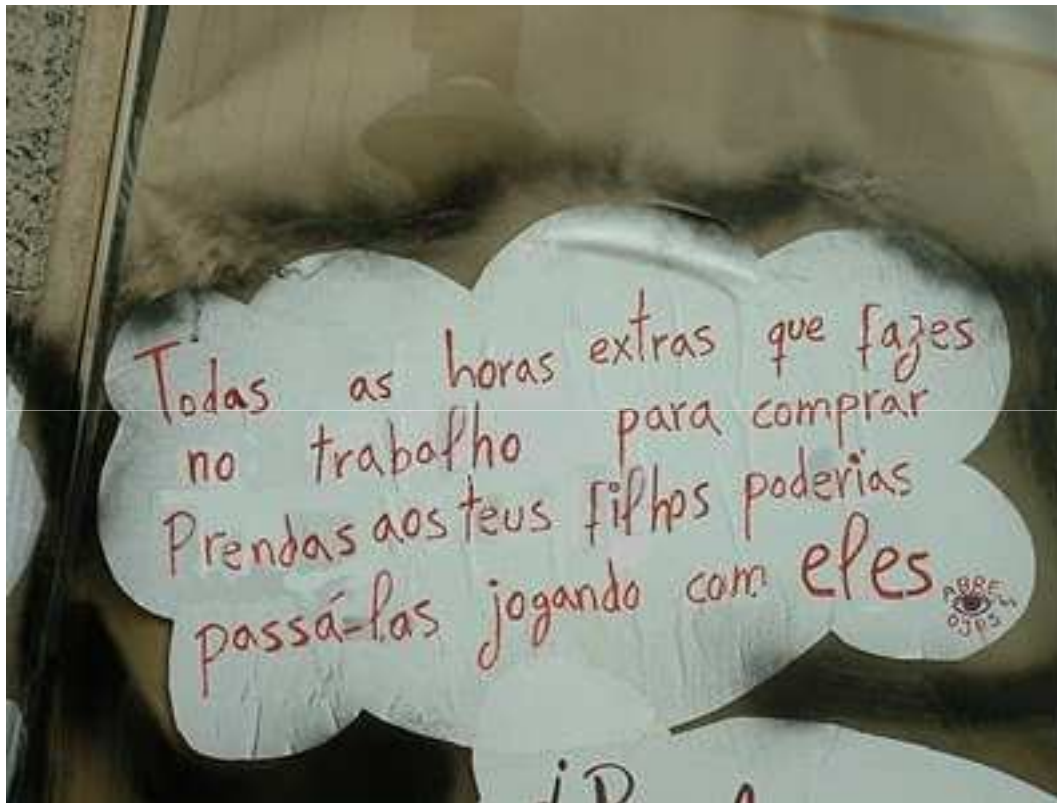 Todas as horas extras que fazes
no trabalho para comprar
Prendas aos teus filhos poderias
passá-las jogando com eles
ABRE
OJOS